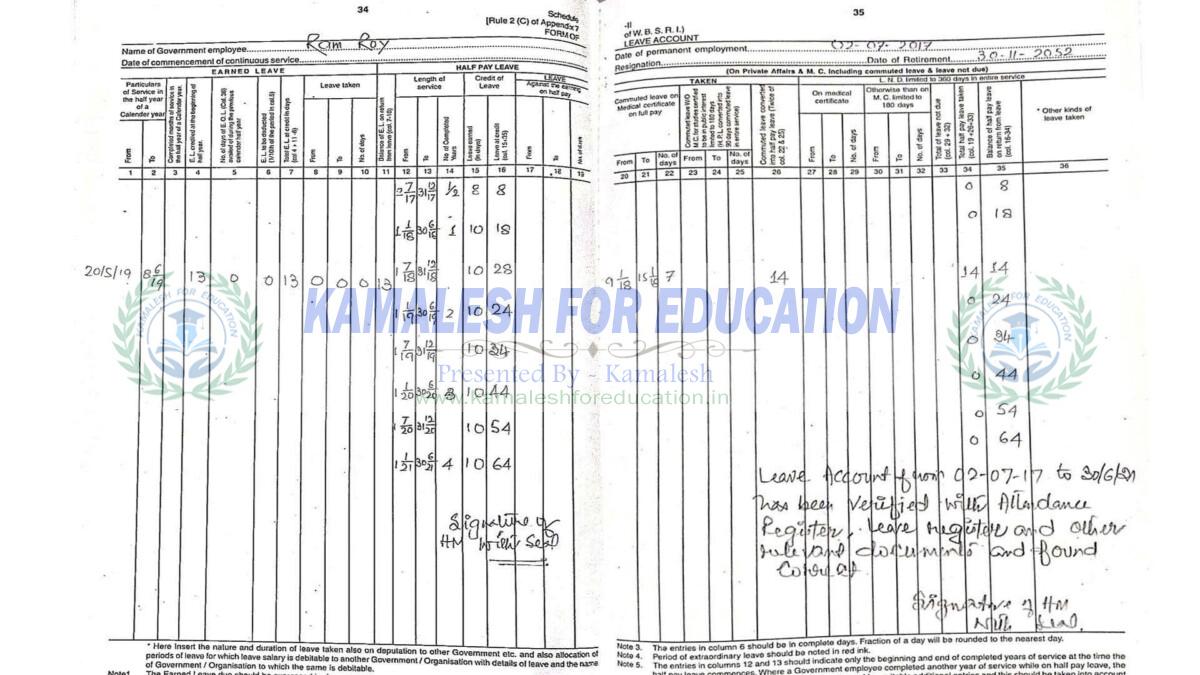 34
Schedule
[Rule 2 (C) of Appendix 7
FORM OF
Name of Government employee Ram Roy
Date of commencement of continuous service
EARNED LEAVE
HALF PAY LEAVE
Particulars of Service in the half year of a Calender year
Leave taken
Length of service
Credit of Leave
LEAVE
Against the earning on half pay
From
To
Completed months of service in the half year of a Calendar year.
E.L. credited at the beginning of half year.
No. of days of E.O.L. (Col. 36) availed of during the previous calendar half year
E.L. to be deducted (1/10th of the period in col.5)
Total E.L. at credit in days (col. 4 + 1 - 6)
From
To
No. of days
Balance of E.L. on return from leave (col. 7-10)
From
To
No of Completed Years
Leave earned (in days)
Leave at credit (col. 15+35)
From
To
No. of days
1 2 3 4 5 6 7 8 9 10 11 12 13 14 15 16 17 18 19
2 7/17 31 12/17 1/2 8 8
1 1/18 30 6/18 1 10 18
1 7/18 31 12/18 10 28
20/5/19 8 6/19 13 0 0 13 0 0 0 13
1 1/19 30 6/19 2 10 24
1 7/19 31 12/19 10 34
1 1/20 30 6/20 3 10 44
1 7/20 31 12/20 10 54
1 1/21 30 6/21 4 10 64
Signature of
HM With Seal
* Here Insert the nature and duration of leave taken also on deputation to other Government etc. and also allocation of
periods of leave for which leave salary is debitable to another Government / Organisation with details of leave and the name
of Government / Organisation to which the same is debitable.
Note1.
35
-II
of W. B. S. R. I.)
LEAVE ACCOUNT
Date of permanent employment 02-07-2017
Date of Retirement 30-11-2052
Resignation
(On Private Affairs & M. C. Including commuted leave & leave not due)
TAKEN
L. N. D. limited to 360 days in entire service
Commuted leave on Medical certificate on full pay
Commuted leave W/O M.C. for studies certified to be in public interest limited to 180 days (H.P.L. converted into 90 days commuted leave in entire service)
Commuted leave converted into half pay leave (Twice of col. 22 & 25)
On medical certificate
Otherwise than on M. C. limited to 180 days
Total of leave not due (col. 29 + 32)
Total half pay leave taken (col. 19 +26+33)
Balance of half pay leave on return from leave (col. 16-34)
* Other kinds of leave taken
From
To
No. of days
From
To
No. of days
From
To
No. of days
From
To
No. of days
20 21 22 23 24 25 26 27 28 29 30 31 32 33 34 35 36
0 8
0 18
9 1/18 15 1/18 7 14 14 14
0 24
0 34
0 44
0 54
0 64
Leave Account from 02-07-17 to 30/6/21
has been verified with Attendance
Register, leave register and other
documents and found
Signature of HM
With Seal.
Note 3. The entries in column 6 should be in complete days. Fraction of a day will be rounded to the nearest day.
Note 4. Period of extraordinary leave should be noted in red ink.
Note 5. The entries in columns 12 and 13 should indicate only the beginning and end of completed years of service at the time the
half pay leave commences. Where a Government employee completed another year of service while on half pay leave, the
KAMALESH FOR EDUCATION
Presented By - Kamalesh
www.kamaleshforeducation.in
KAMALESH FOR EDUCATION
KAMALESH FOR EDUCATION